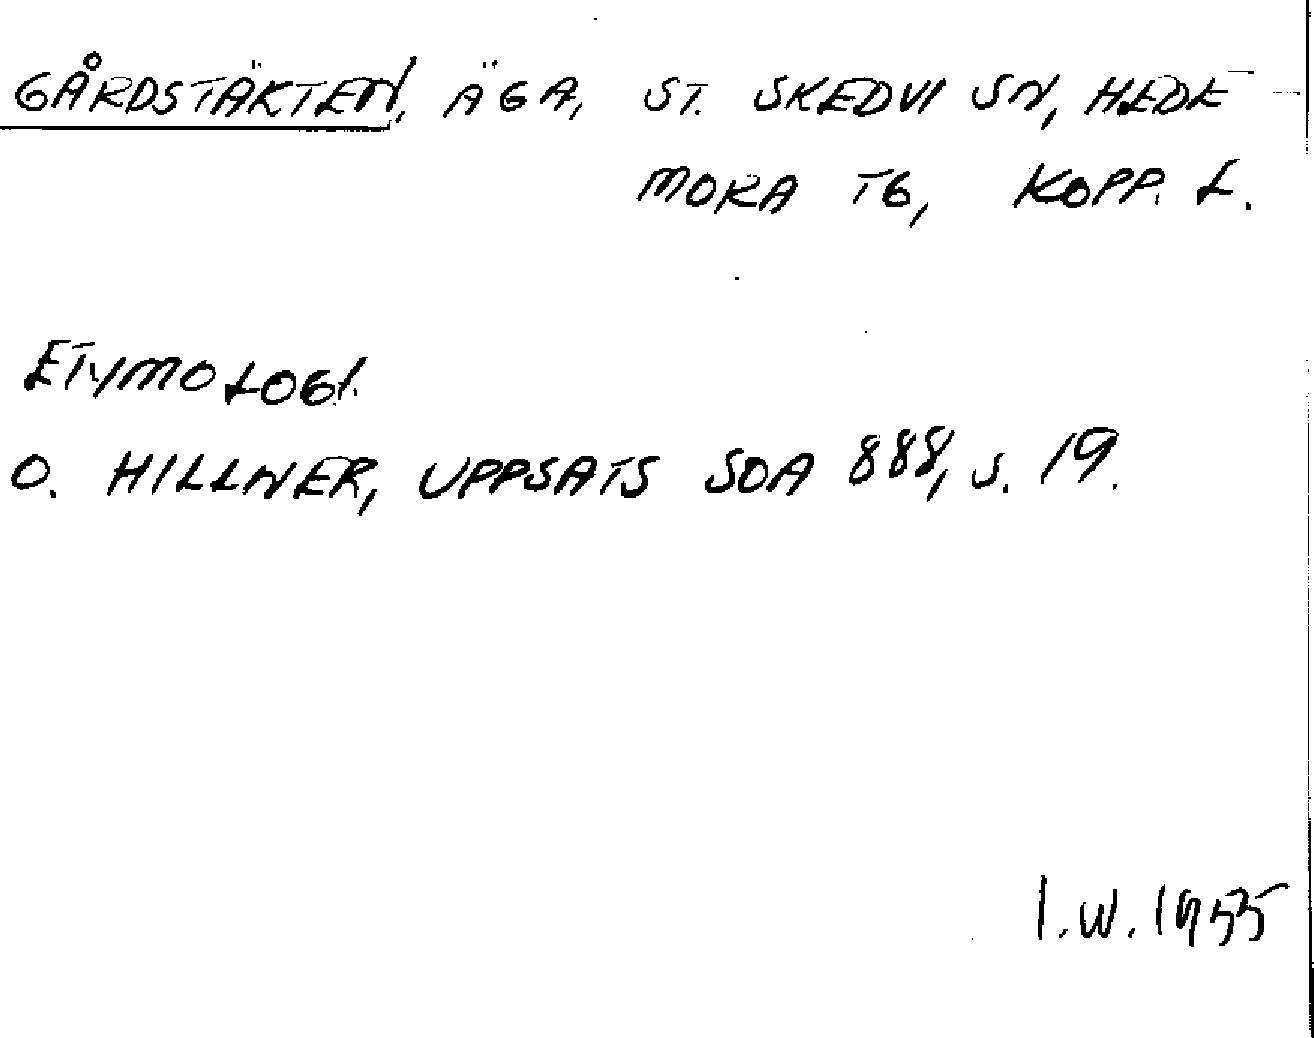 GÅRDSTÄKTEN, ÄGA, ST. SKEDVI SN, HEDE-
MORA TG, KOPP. L.
ETYMOLOGI.
O. HILLNER, UPPSATS SOA 888, S. 19.
I.W. 1955